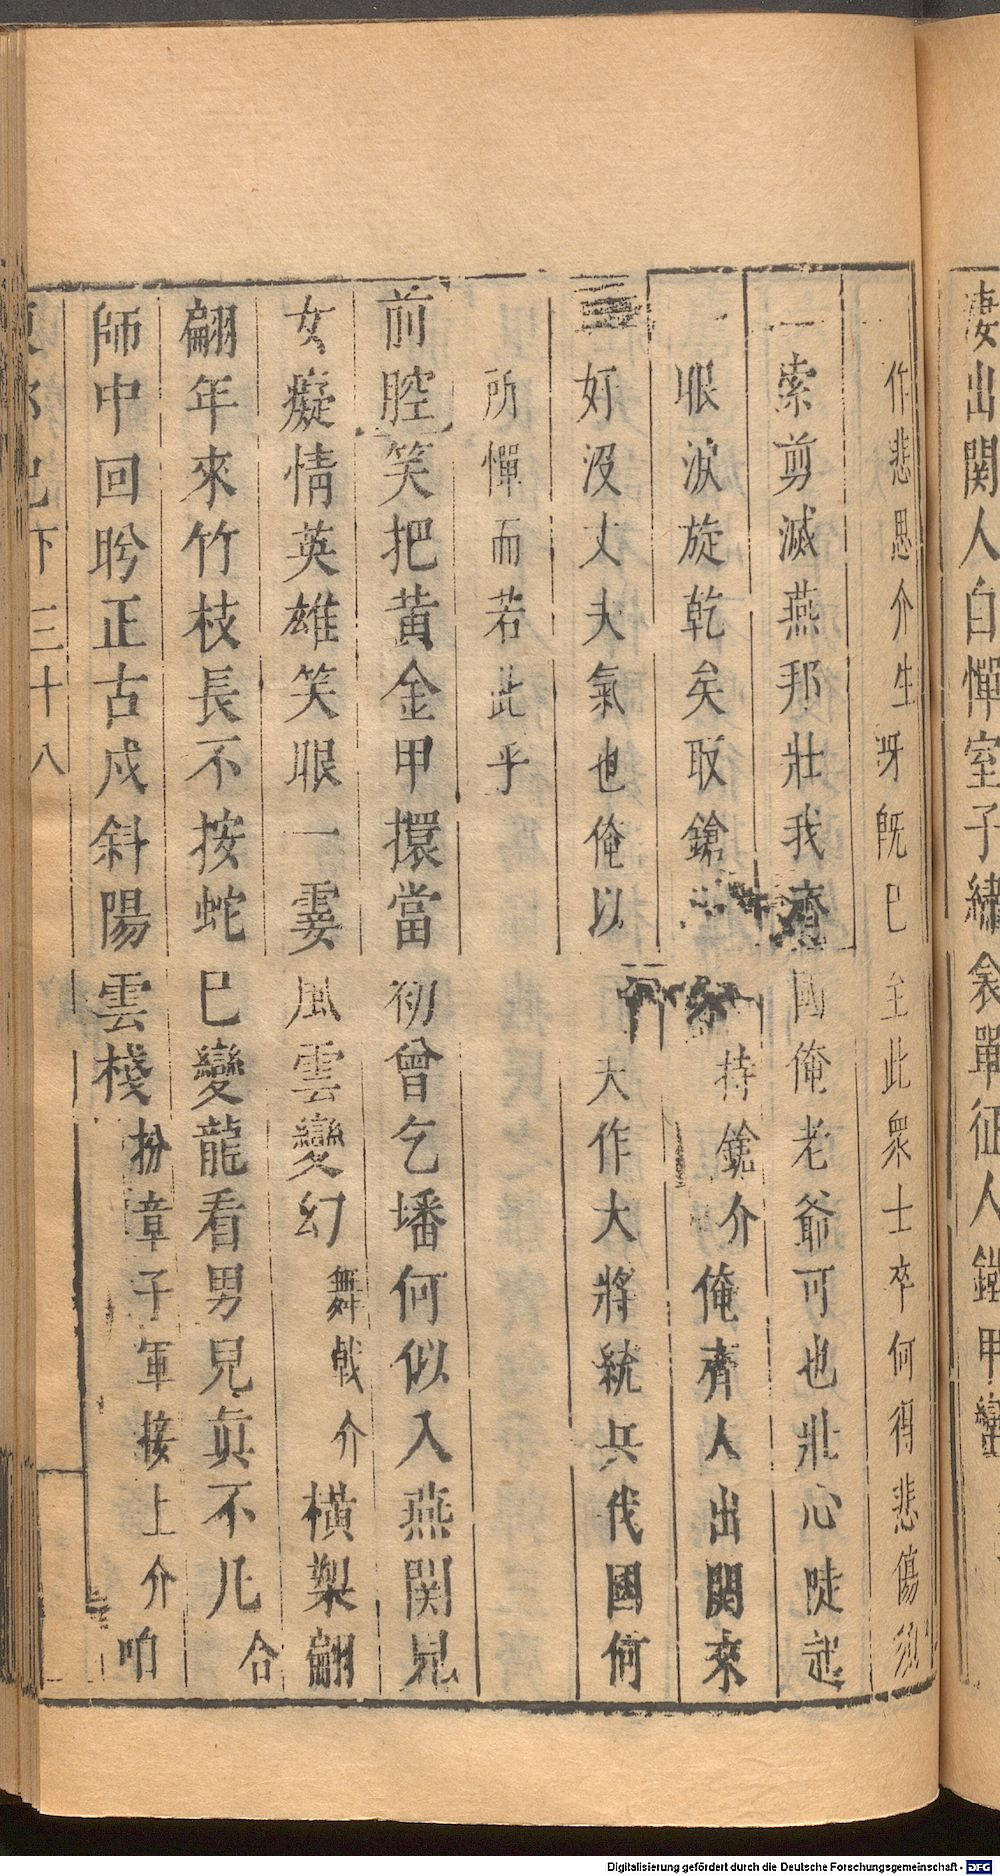 凄出関人白憚室子繡衾單征人鐵甲
作悲思介生呀旣已至此衆士卒何得悲傷須
一索剪滅燕邦壯我齊國俺老爺可也壯心陡起
眼淚旋乾矣取鎗持鎗介俺齊人出関來
好沒丈夫氣也俺以大作大將統兵伐國何
所憚而若此乎
前腔笑把黄金甲擐當初曾乞墦何似入燕関兒
女癡情英雄笑眼一霎風雲變幻舞戟介橫槊翩
翩年來竹枝長不按蛇已變龍看男兒眞不凡合
師中回盻正古戍斜陽雲棧扮章子軍接上介咱
下三十八
Digitalisierung gefördert durch die Deutsche Forschungsgemeinschaft - DFG